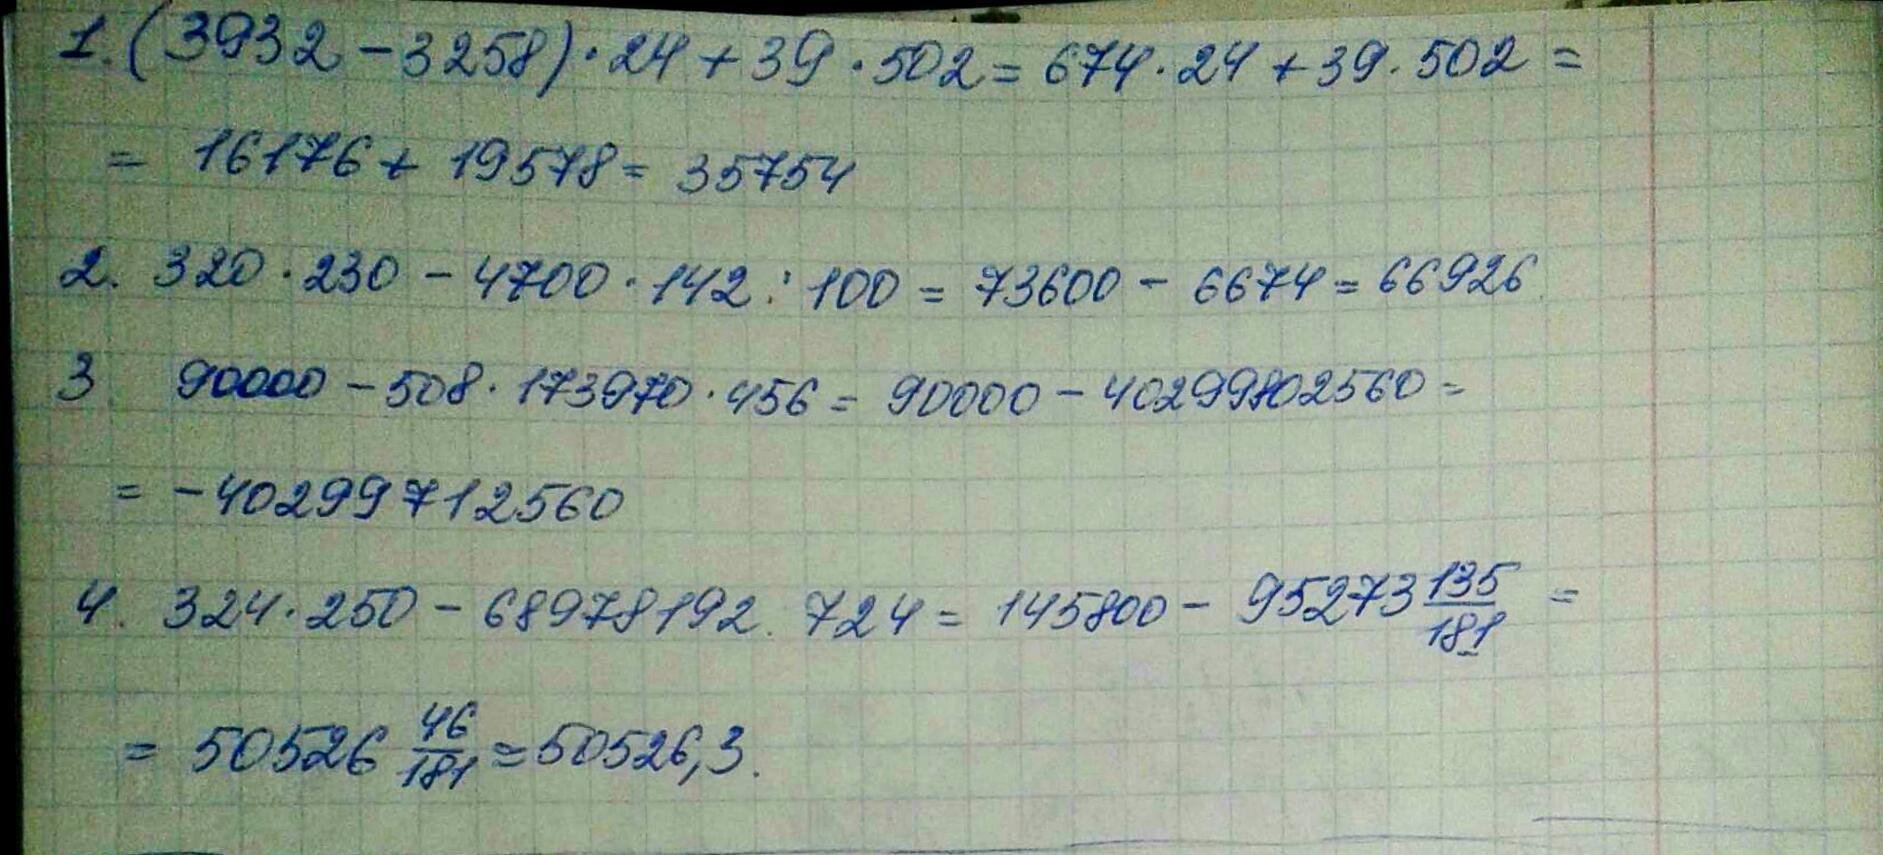 1. (3932 - 3258) · 24 + 39 · 502 = 674 · 24 + 39 · 502 =
= 16176 + 19578 = 35754
2. 320 · 230 - 4700 · 142 : 100 = 73600 - 6674 = 66926
3 90000 - 508 · 173970 · 456 = 90000 - 40299802560 =
= -40299712560
4. 324 · 250 - 68978192 . 724 = 145800 - 95273 135/181 =
= 50526 46/181 = 50526,3.